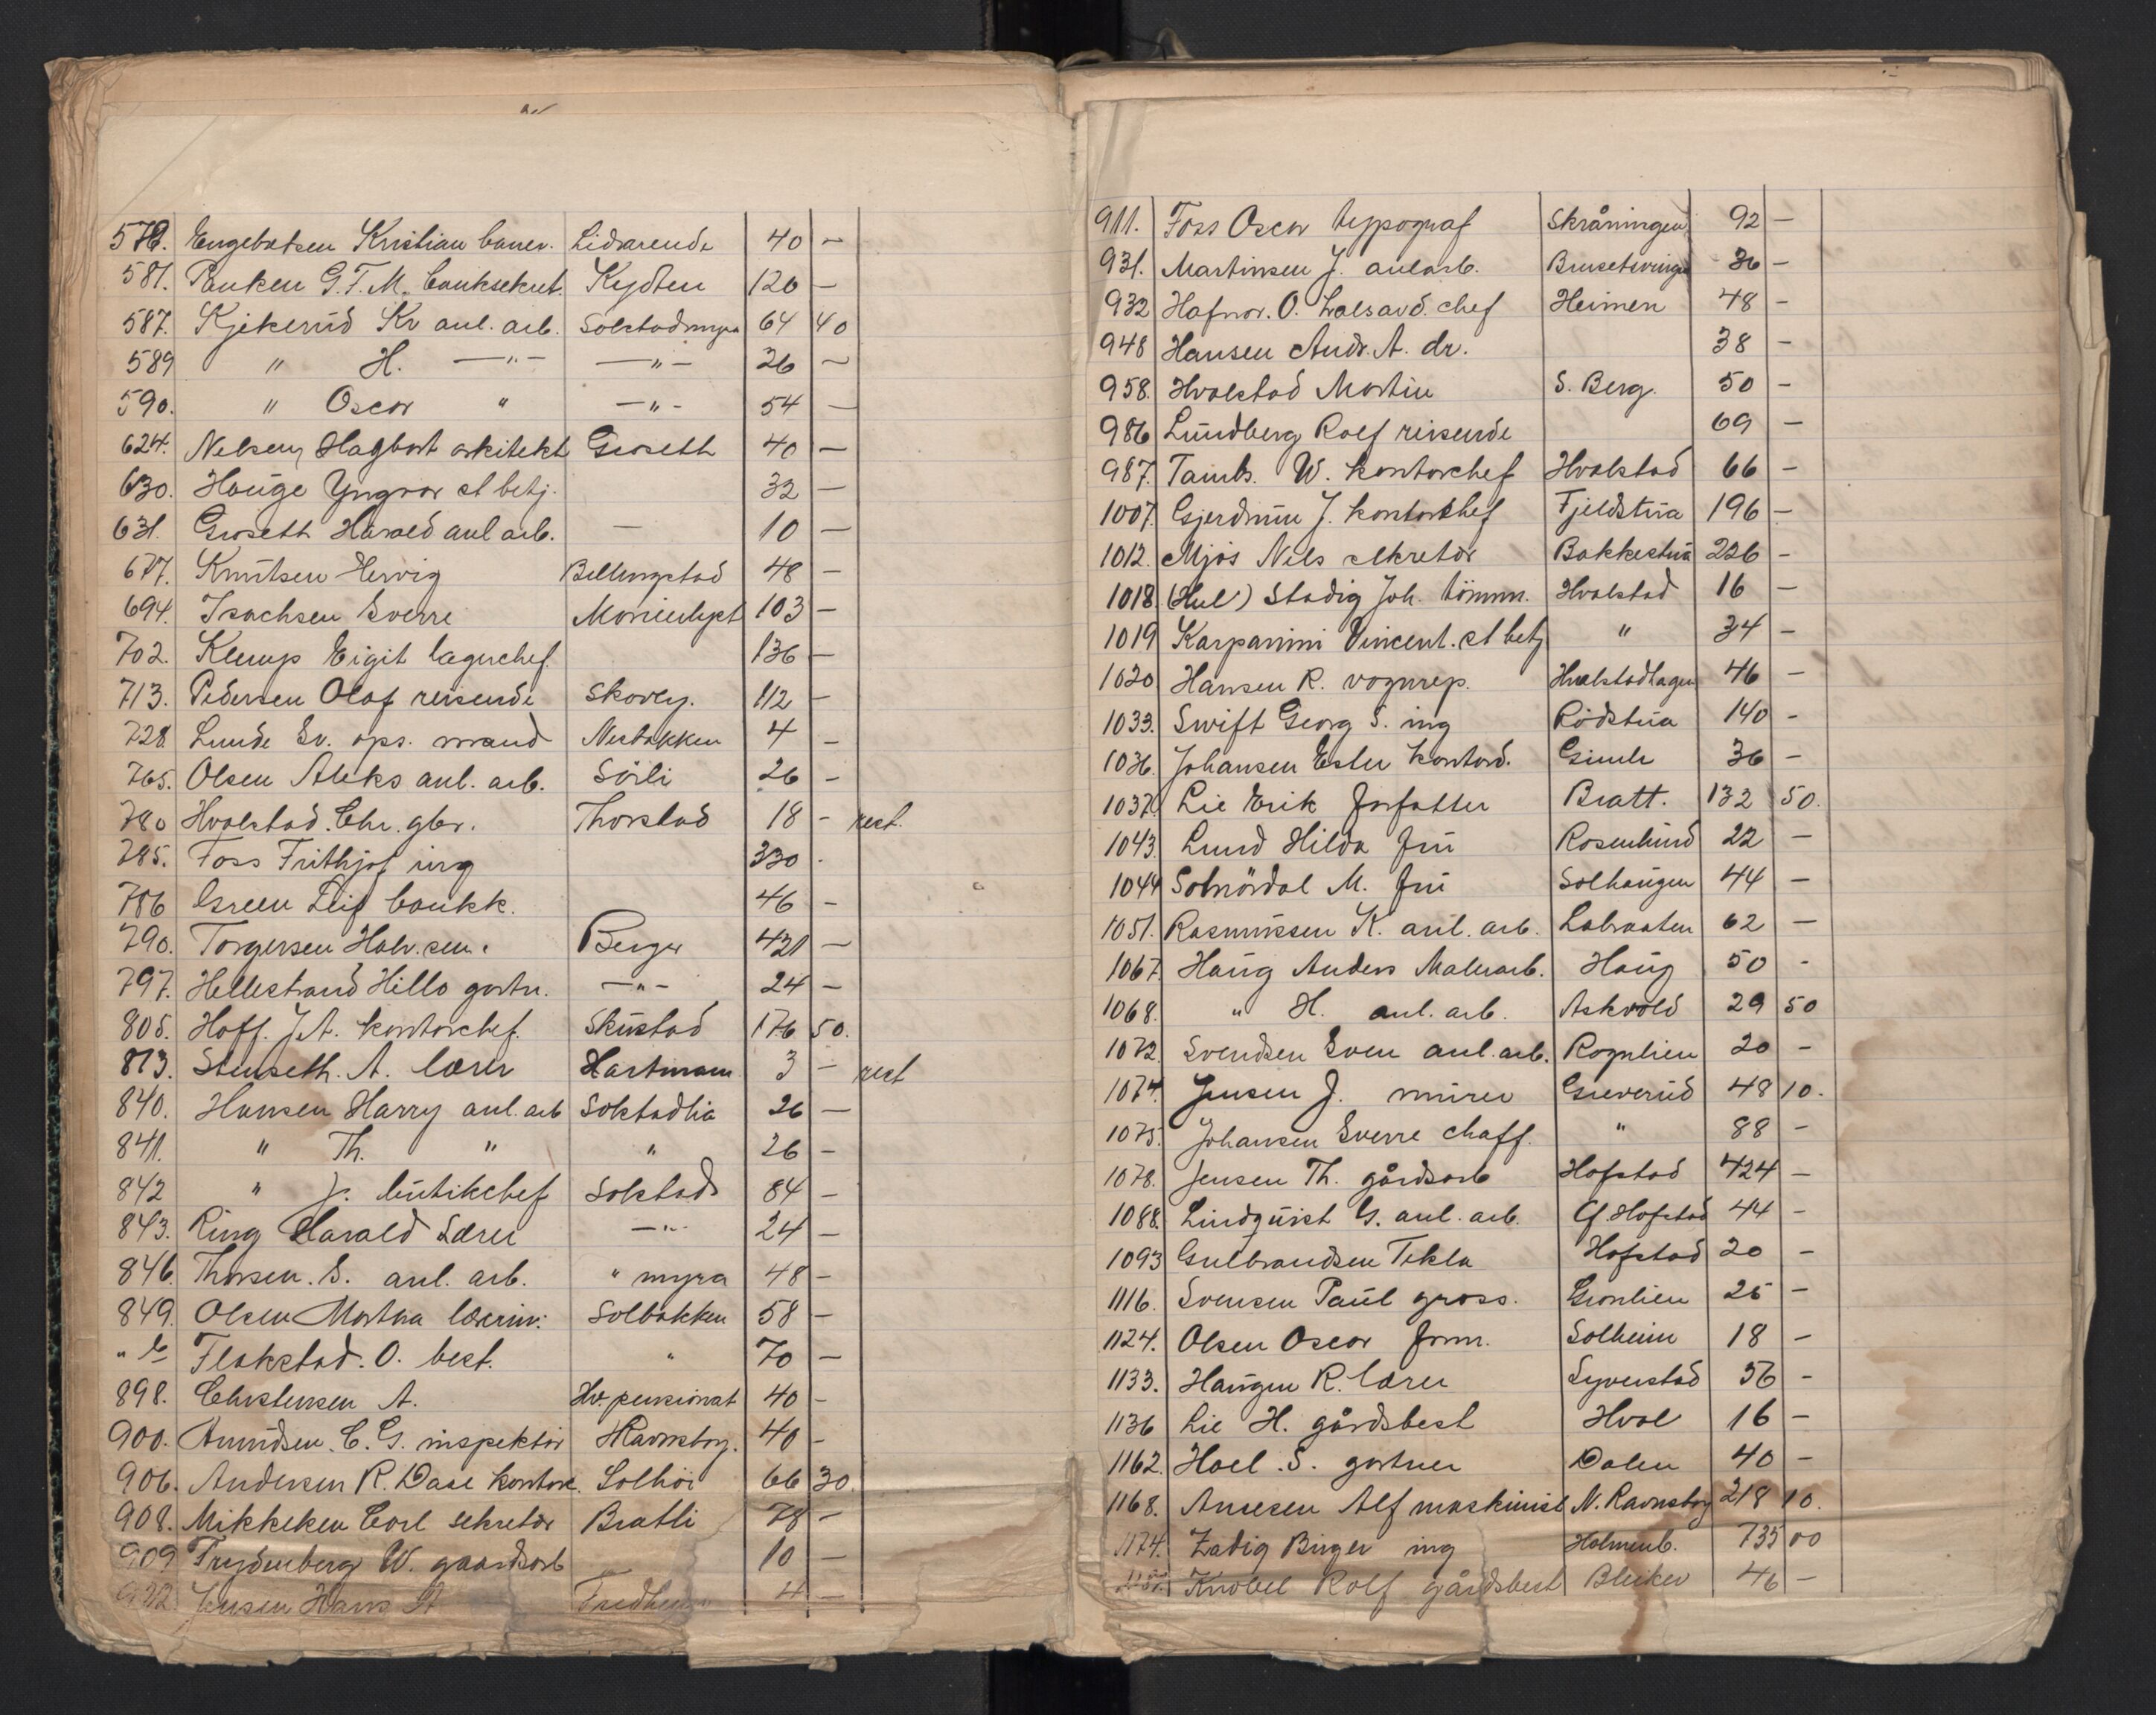 578. Engebretsen Kristian banev. Lidarende 40 —
581. G.T.M. banksekret. 120 —
587. Kjekerud Kr anl. arb. Solstadmyra 64 40
589 " H. —"— —"— 26 —
590. " Oscar " —"— 54 —
624. Nelsen Hagbart arkitekt Groseth 40 —
630. Hauge Yngvar st betj. 32 —
631. Groseth Harald anl arb. — 10 —
677. Knutsen Hervig Billingstad 48 —
694. Isachsen Sverre Marienlyst 103 —
702. Klemp Eigit lagerchef 136 —
713. Pedersen Olaf reisende Skovly. 112 —
728 Lunde Sv. ops. mand Nesbakken 4 —
765. Olsen Aleks anl. arb. Sörli 26 —
780 Hvalstad. Chr. gbr. Thorstad 18 - rest.
785. Foss Frithjof ing 330 .
786 Green Leif bankk. 46 -
790. Torgersen Halv. sen. Berger 421 —
797. Hellestrand Hillo gartn. —"— 24 —
805. Hoff. J.A. kontorchef. Skustad 176 50.
813. Stenseth. A. lærer Hartmann 3 — rest
840. Hansen Harry anl. arb Solstadlia 26 —
841. " Th. " " 26 —
842 " J. butikchef Solstad 84 —
843. Ring Harald Lærer —"— 24 —
846. Thorsen. S. anl. arb. " myra 48 -
849. Olsen Martha lærerin: Solbakken 58 —
" b Flakstad. O. best. " 70 —
898. Christensen A. Hv. pensionat 40 -
900. Amundsen. C. G. inspektör Ravnsborg. 40 -
906. Andersen R. Dase kontor. Solhöi 66 30.
908. Mikkelsen Carl sekretær Bratli 78 —
909 Frydenberg W. gaardsarb 10 —
Jensen Hans A Fredheim 4 —
911. Foss Oscar typograf Skråningen 92 —
931. Martinsen J. anl arb. Brusetsvingen 36 —
932 Hafnor. O. salsavd. chef Heimen 48 -
948 Hansen Andr. A. dr. 38 -
958. Hvalstad Martin S. Berg. 50 -
986 Lundberg Rolf reisende 69 —
987. Tambs. W. kontorchef Hvalstad 66 -
1007. Gjerdrum J. kontorchef Fjeldstua 196 -
1012. Mjös Nils sekretær Bakkestua 226 -
1018 (Hul) Stadig Joh. tömm. Hvalstad 16 —
1019 Karpanini Vincent. st betj " 34 -
1020 Hansen R. vognrep. Hvalstadhagen 46 —
1033. Swift Georg S. ing Rödstua 140 -
1036. Johansen Ester kontord. Gimle 36 —
1037. Lie Erik forfatter Bratt. 132 50.
1043. Lund Hilda fru Rosenlund 22 —
1044 Solnördal M. fru Solhaugen 44 —
1051. Rasmussen K. anl. arb. Labraaten 62 —
1067. Haug Anders Malerarb. Haug 50 -
1068. " H. anl. arb. Askvold 29 50
1072. Svendsen Sven anl. arb. Rognlien 20 -
1074. Jensen J. murer Greverud 48 10.
1075. Johansen Sverre chaff. " 88 -
1078. Jensen Th. gårdsarb Hofstad 424 —
1088. Lindquist G. anl. arb. Hofstad 44 —
1093 Gulbrandsen Tekla Hofstad 20 -
1116. Svensen Paul gross. Grönlien 25 -
1124. Olsen Oscar form. Solheim 18 —
1133. Haugen R. lærer Syverstad 56 -
1136 Lie H. gårdsbest Hval 16 —
1162. Hoel. S. gartner Dalen 40 —
1168. Ansesen Alf maskinist N. Ravnsborg 218 10.
1174. Zadig Birger ing Holmenb. 735 00
Knobel Rolf gårdsbest Bleiker 46 —